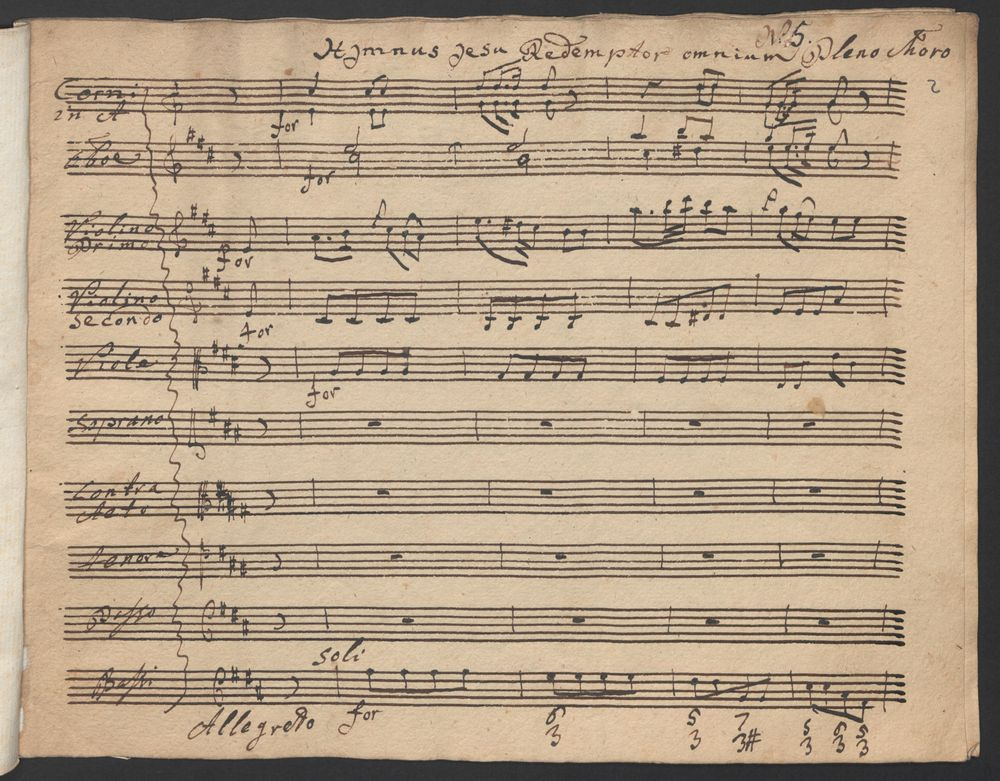 No. 5.
Hymnus Jesu Redemptor omnium Pleno Choro
2
Corni
in A
for
Oboe
for
Violino
Primo
for
Violino
Secondo
for
Viole
for
Soprano
Contra
Alto
Tenore
Basso
soli
Bassi
Allegretto for
6 5 7 5 6 5
3 3 3# 3 3 3